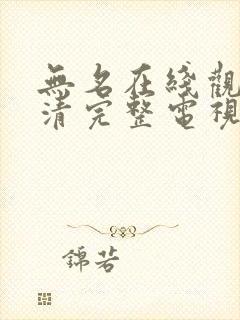 無名在綫觀
清完整電視
錦若